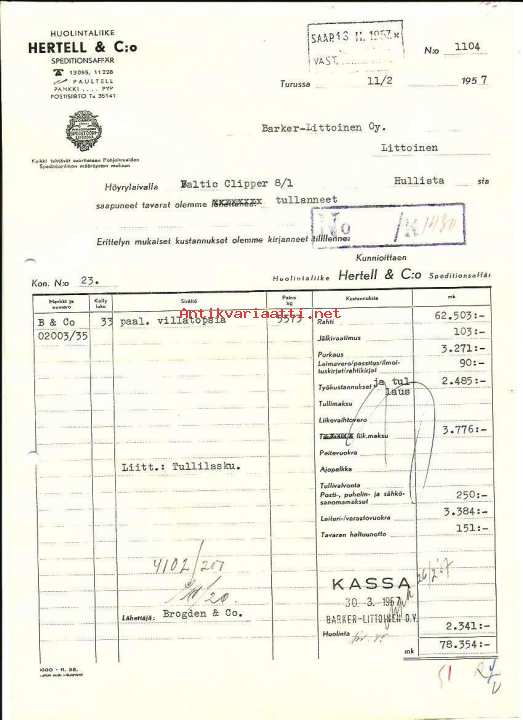 HUOLINTALIIKE
HERTELL & C:o
SPEDITIONSAFFÄR
13055, 11228
PAULTELL
PANKKI .... PYP
POSTISIIRTO Tu 35141
SAAP. 13 II. 1957
VAST.
N:o 1104
Turussa 11/2 1957
Kaikki tehtävät suoritetaan Pohjoismaiden
Speditööriliiton määräysten mukaan
Barker-Littoinen Oy.
Littoinen
Höyrylaivalla Baltic Clipper 8/1 Hullista sta
saapuneet tavarat olemme tullanneet
No
Erittelyn mukaiset kustannukset olemme kirjanneet tilillenne:
Kunnioittaen
Kon. N:o 23.
Huolintaliike Hertell & C:o Speditionsaffär
Merkit ja numero
Kolly luku
Sisältö
Paino kg
Kustannuksia
mk
B & Co 33 paal. villatopsia 5573
02003/35
Antikvariaatti.net
Rahti 62.503:-
Jälkivaatimus 103:-
Purkaus 3.271:-
Laivurivero/passitus/ilmoi-
tuskirjat/rahtikirjat 90:-
Työkustannukset ja tul 2.485:-
laus
Tullimaksu
Liikevaihtovero
liik.maksu 3.776:-
Peitevuokra
Ajopalkka
Liitt.: Tullilasku.
Tullivalvonta
Posti-, puhelin- ja sähkö-
sanomamaksut 250:-
Laituri-/varastovuokra 3.384:-
Tavaran haltuunotto 151:-
4102/207
KASSA
30. 3. 1957
BARKER-LITTOINEN O.Y.
Lähettäjä: Brogden & Co.
Huolinta 2.341:-
mk 78.354:-
51